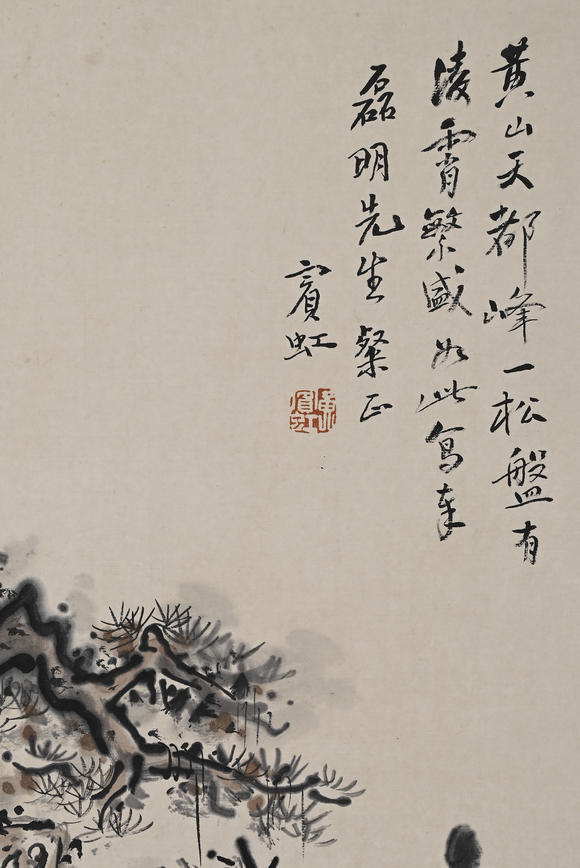 黄山天都峰一松盤有
凌霄繁盛如此寫奉
磊明先生粲正
賓虹
黃賓虹